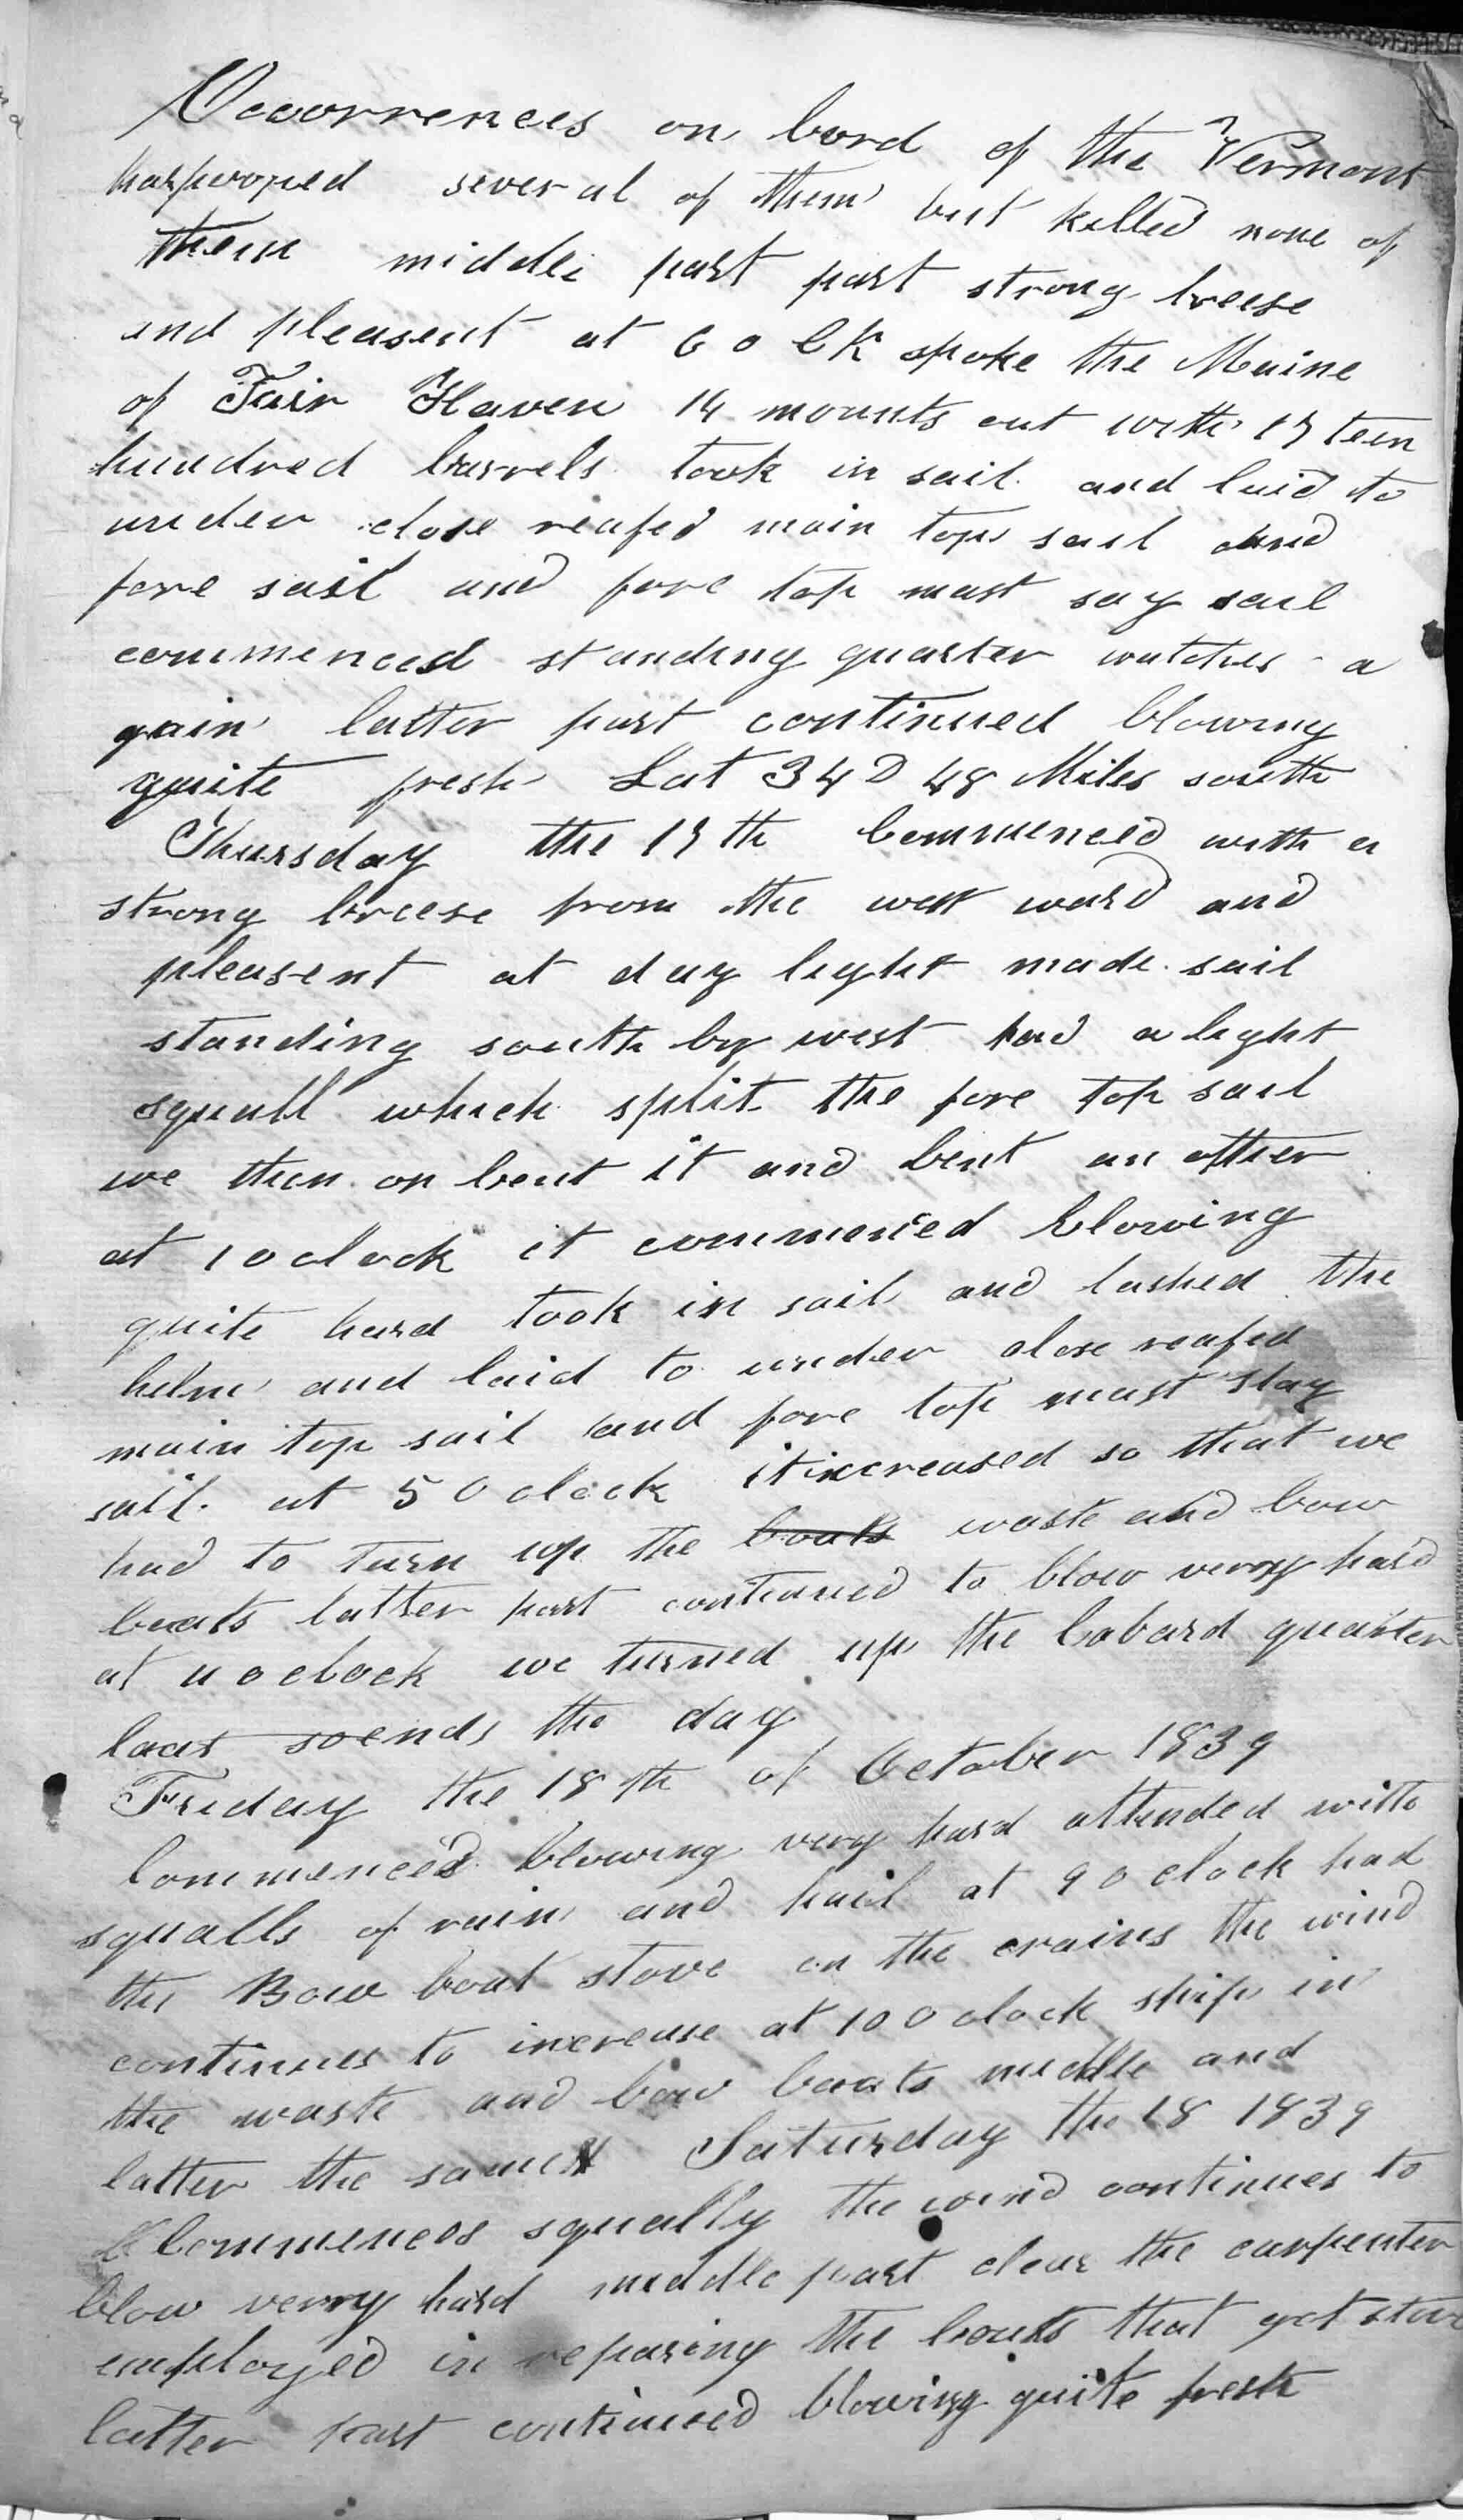 Occorrences on bord of the Vermont
harpooned several of them but killed none of
them middle part part strong breese
and pleasent at 6 o clk spoke the Maine
of Fair Haven 14 mounts out with 17 teen
hundred barrels took in sail and laid to
under close reafed main top sail and
fore sail and fore top mast say sail
commenced standing quarter watches a
gain latter part continued blowing
quite fresh Lat 34D 48 Miles south
Thursday the 17th Commenced with a
strong breese from the west ward and
pleasent at day light made sail
standing south by west had a light
squall which split the fore top sail
we then on bent it and bent an other
at 1 o clock it commenced blowing
quite hard took in sail and lashed the
helm and laid to under close reafed
main top sail and fore top mast stay
sail at 5 O clock it increased so that we
had to turn up the boats waste and bow
boats latter part continued to blow verry hard
at 11 o clock we turned up the labard quarter
boat so ends the day
Friday the 18th of October 1839
Commenced blowing very hard attended with
squalls of rain and hail at 9 o clock had
the Bow boat stove on the crains the wind
continues to increase at 10 O clock ship in
the waste and bow boats middle and
latter the same Saturday the 18 1839
Commences squally the wind continues to
blow verry hard middle part clear the carpenter
employed in reparing the boats that got stove
latter part continued blowing quite fresh